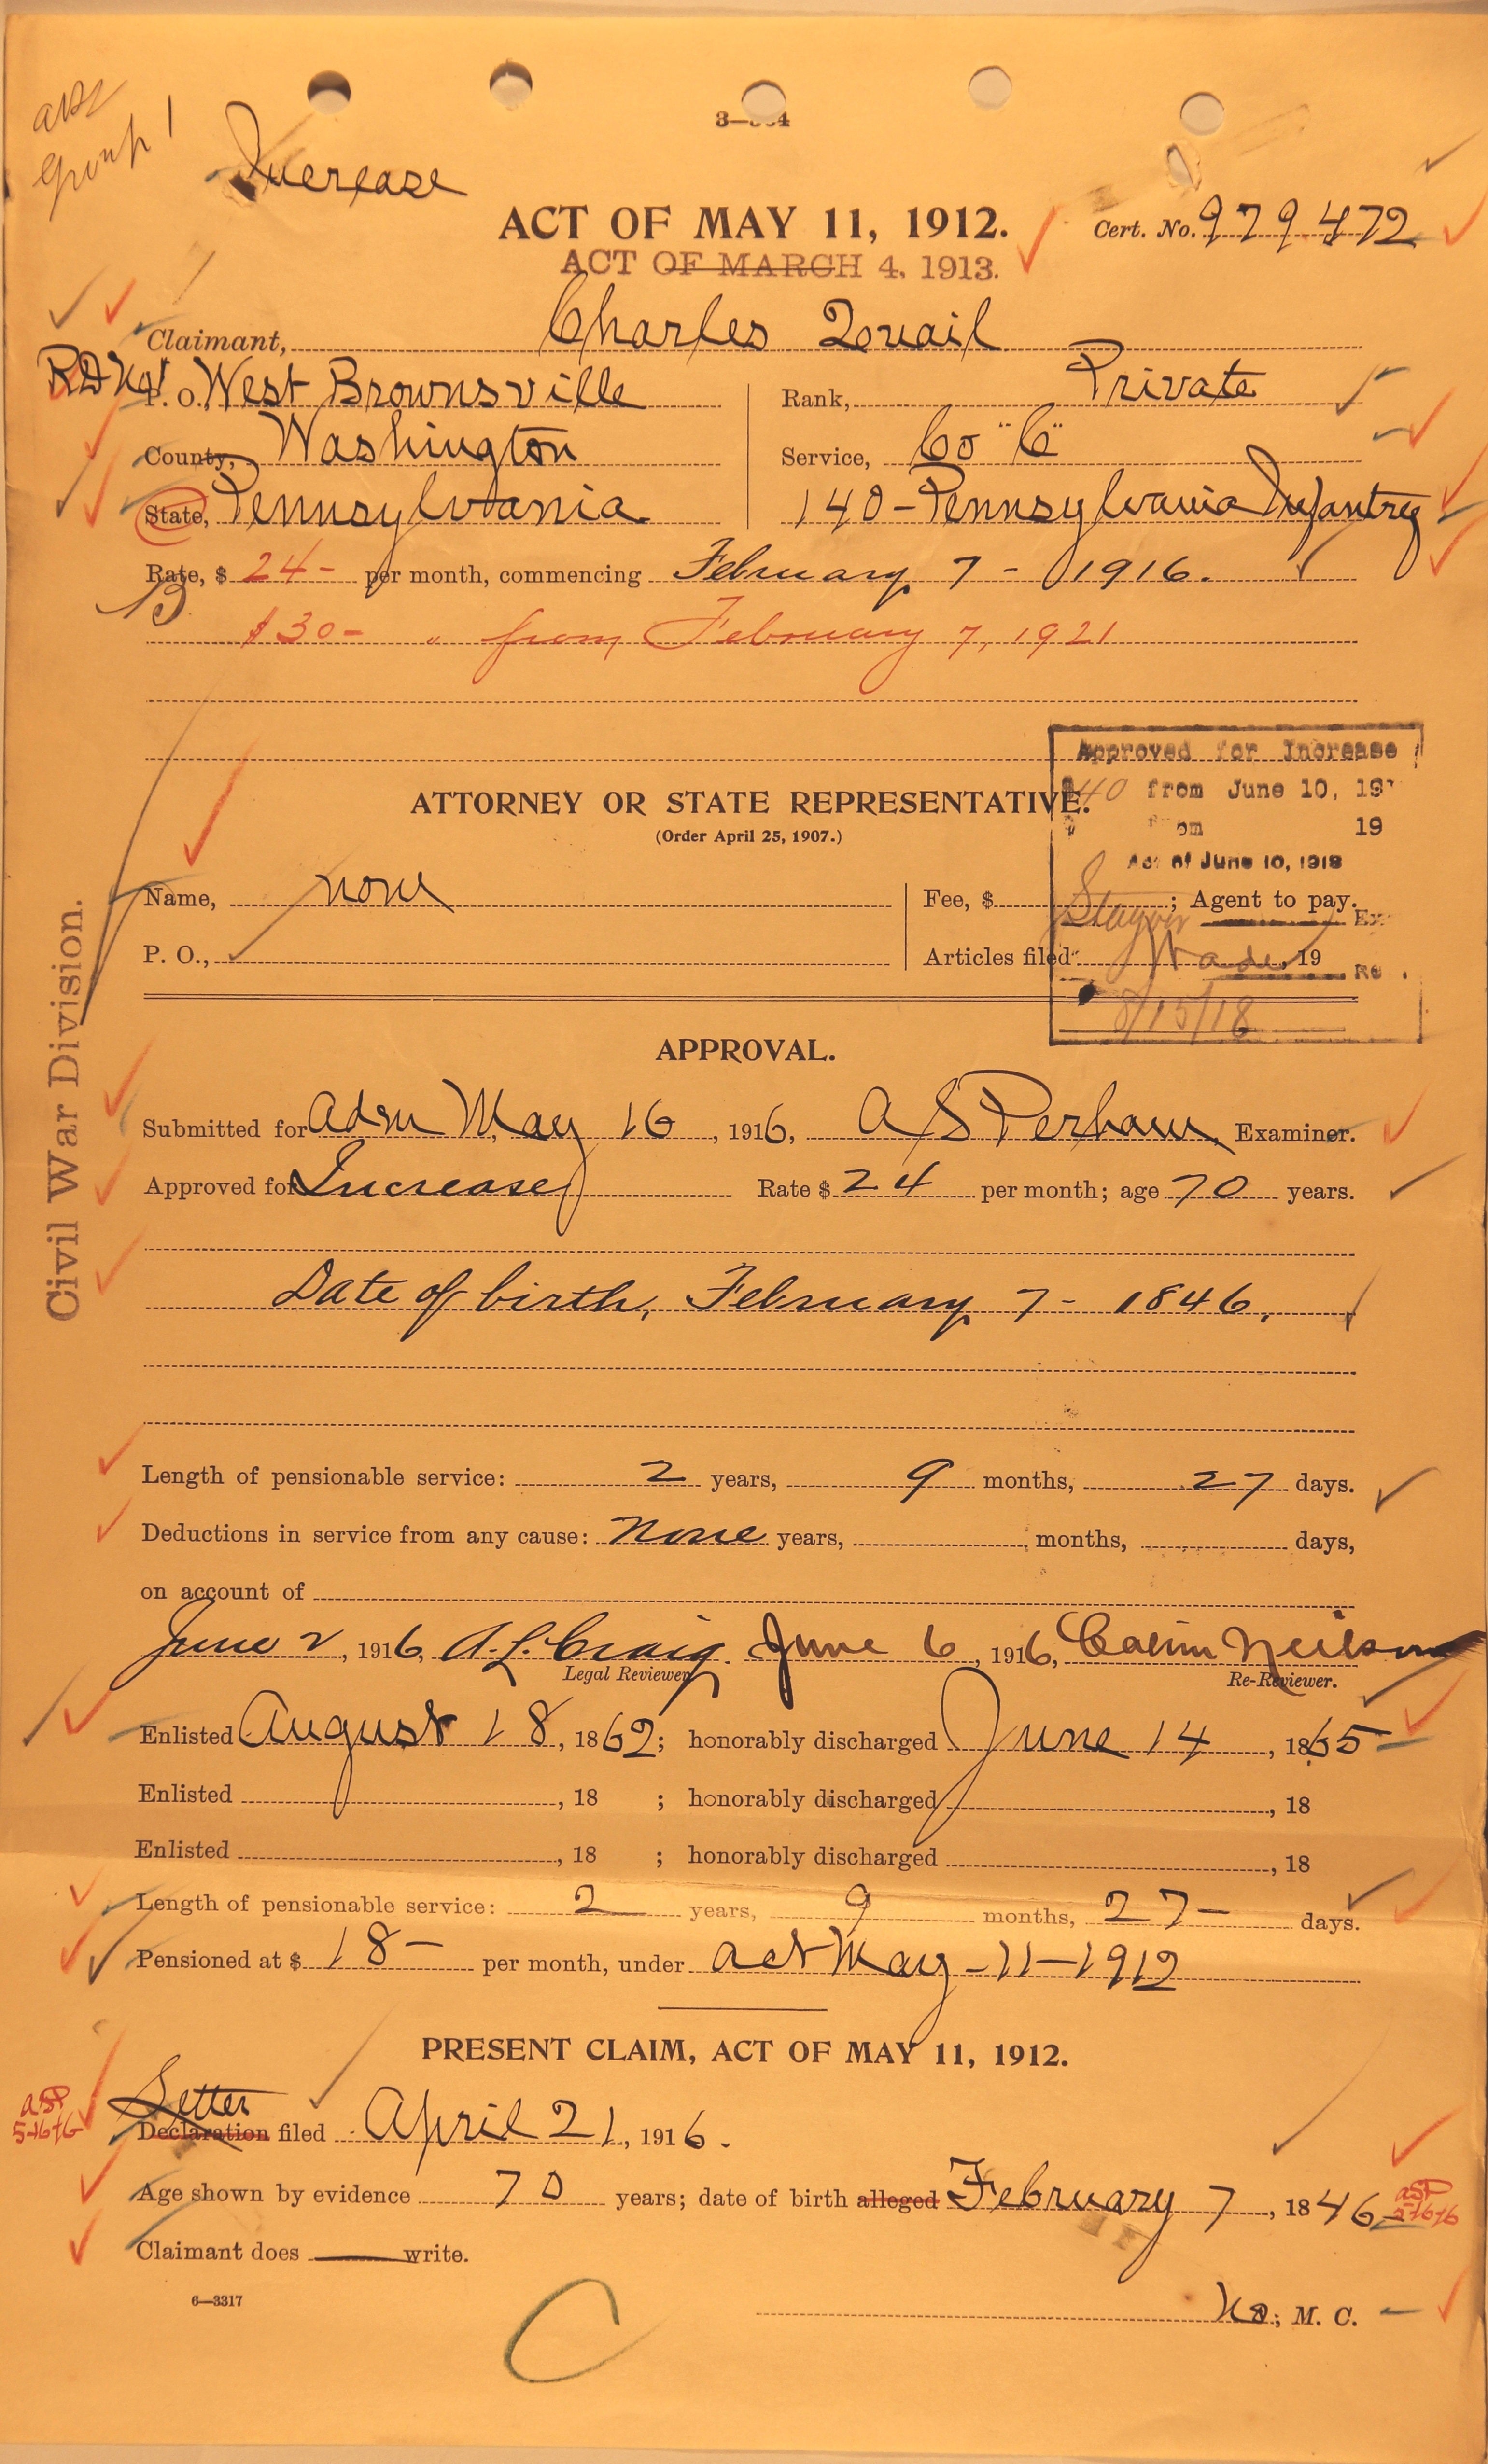 ASP
Group 1
3—
Increase
ACT OF MAY 11, 1912.
Cert. No. 979472
ACT OF MARCH 4, 1913.
Claimant, Charles Quail
RD No 1
P. O., West Brownsville
Rank, Private
County, Washington
Service, Co "C"
State, Pennsylvania
140 - Pennsylvania Infantry
Rate, $ 24 - per month, commencing February 7 - 1916.
B
$30 - " from February 7, 1921
Approved for Increase
$40 from June 10, 19
ATTORNEY OR STATE REPRESENTATIVE.
19
(Order April 25, 1907.)
Act of June 10, 1918
Name, none
Fee, $ ; Agent to pay.
Ex
P. O.,
Articles filed , 19
Wade
Re
8/15/18
Civil War Division.
APPROVAL.
Submitted for Adm May 16, 1916, A S Perham, Examiner.
Approved for Increase Rate $ 24 per month; age 70 years.
Date of birth, February 7 - 1846.
Length of pensionable service: 2 years, 9 months, 27 days.
Deductions in service from any cause: None years, months, days,
on account of
June 2, 1916, A. L. Craig. June 6, 1916, Calvin Neilson
Legal Reviewer Re-Reviewer.
Enlisted August 18, 1862; honorably discharged June 14, 1865
Enlisted , 18 ; honorably discharged , 18
Enlisted , 18 ; honorably discharged , 18
Length of pensionable service: 2 years, 9 months, 27 - days.
Pensioned at $ 18 - per month, under act May - 11 - 1912
PRESENT CLAIM, ACT OF MAY 11, 1912.
Letter
ASP
5-16-16
Declaration filed April 21, 1916.
Age shown by evidence 70 years; date of birth alleged February 7, 1846
ASP
5-16-16
Claimant does write.
6—3317
No; M. C.
C